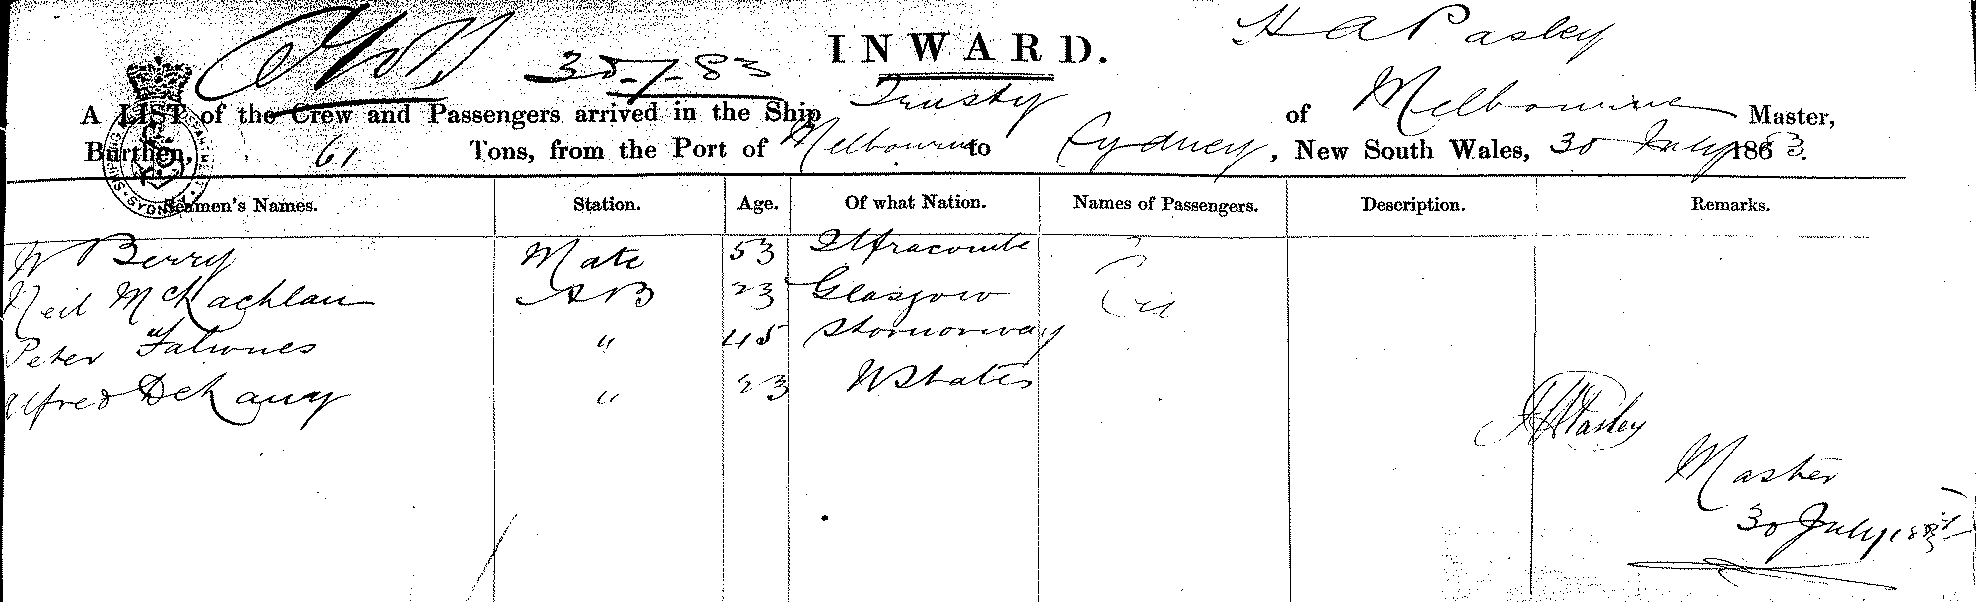 INWARD.
H A Pasley
30-7-83
A LIST of the Crew and Passengers arrived in the Ship Trusty of Melbourne Master,
Burthen, 61 Tons, from the Port of Melbourne to Sydney, New South Wales, 30 July 1863.
Seamen's Names. Station. Age. Of what Nation. Names of Passengers. Description. Remarks.
W Berry Mate 53 Ilfracombe
Neil McLachlan AB 23 Glasgow
Peter " 45 Stornorway
Alfred " 23 U States
H A Pasley
Master
30 July 1883